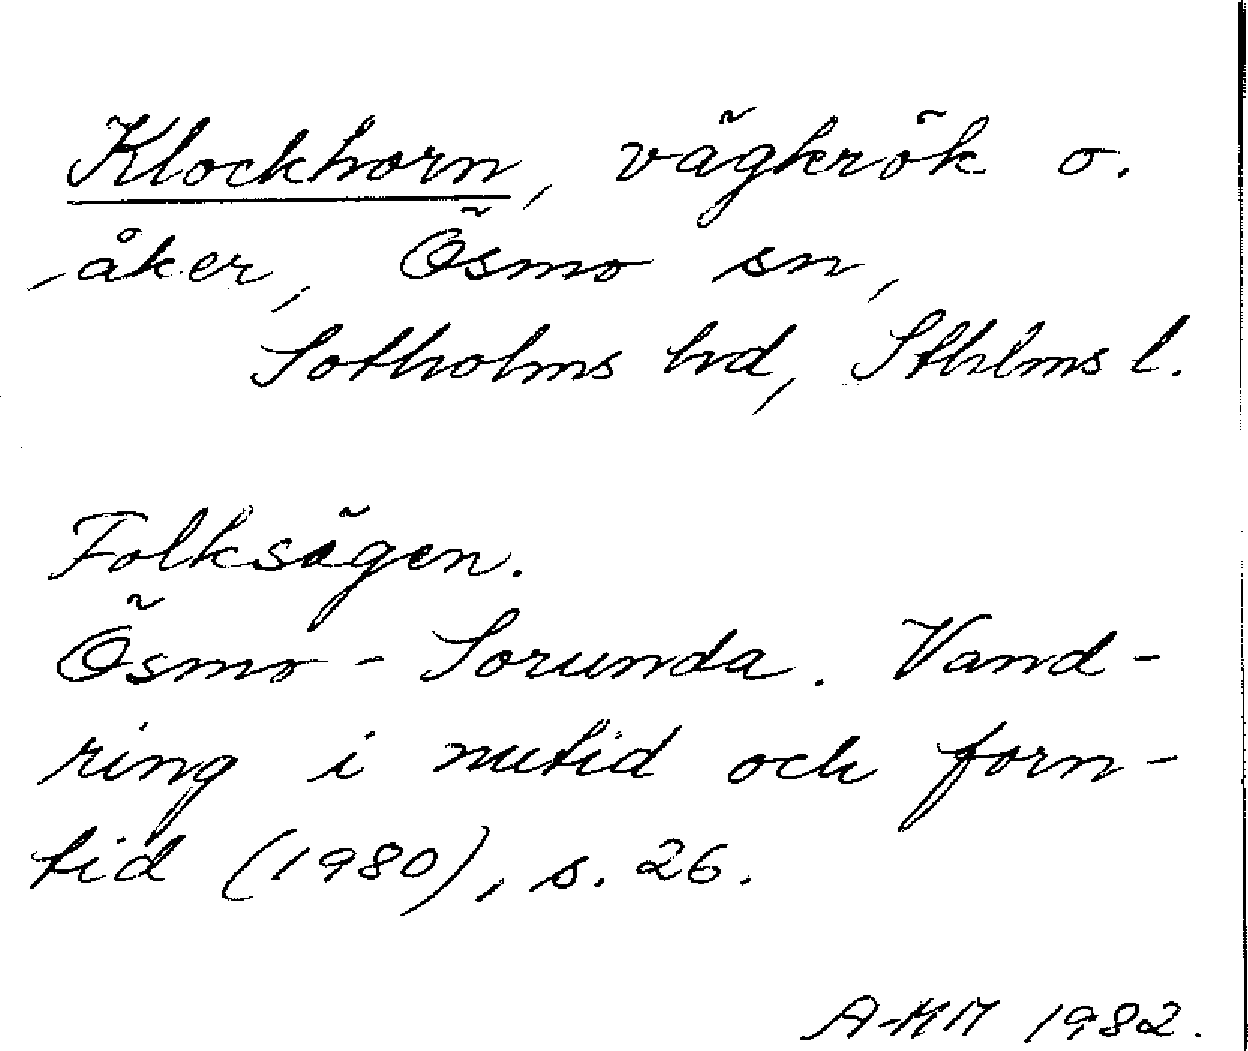 Klockhorn, vägkrök o.
åker, Ösmo sn,
Sotholms hd, Sthlms l.
Folksägen.
Ösmo - Sorunda. Vand-
ring i nutid och forn-
tid (1980), s. 26.
A-KM 1982.